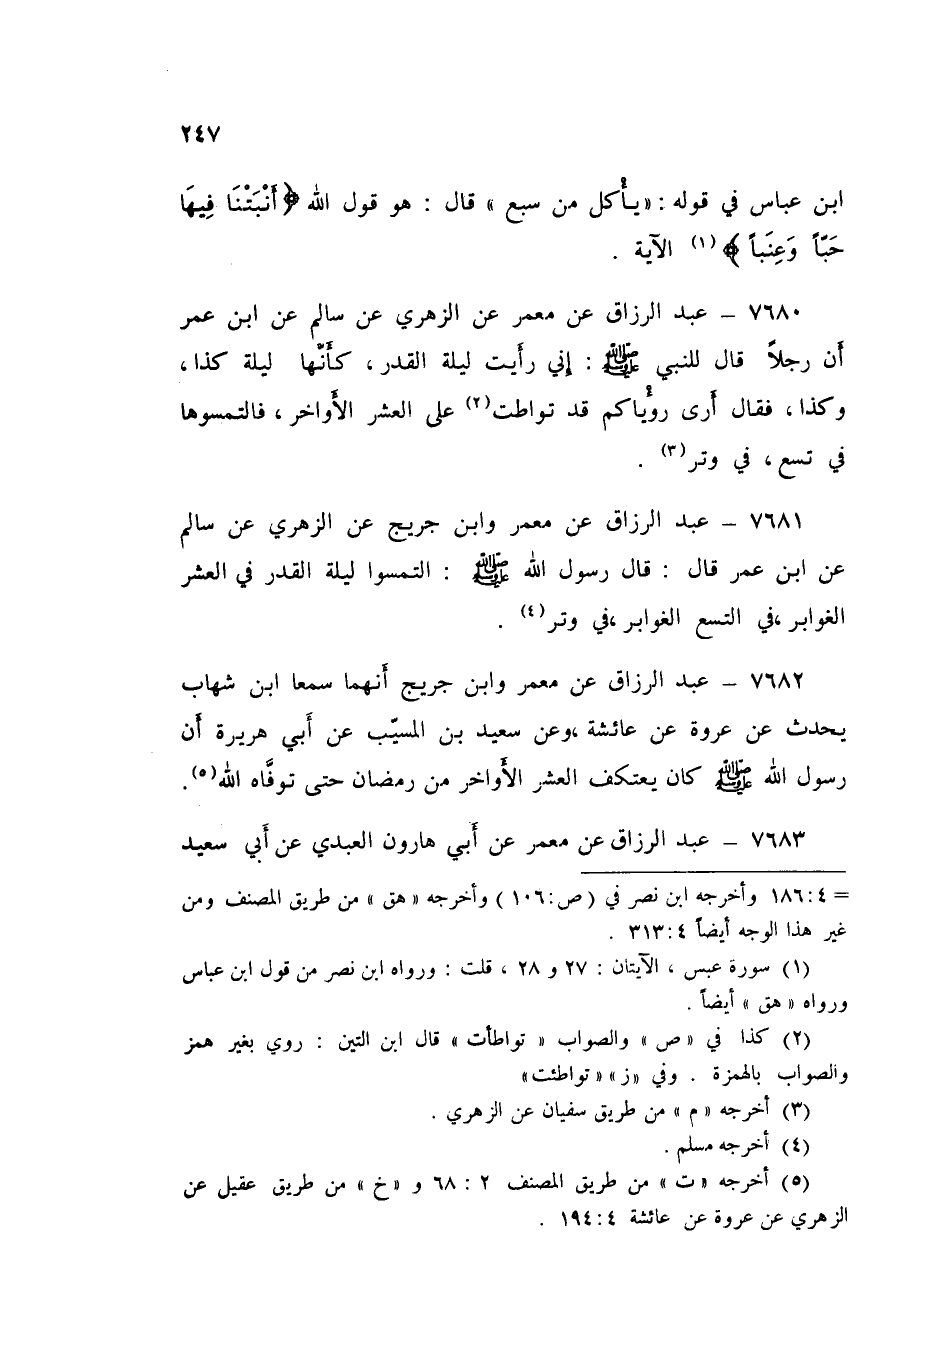 ٢٤٧
ابن عباس في قوله : « يأكل من سبع » قال : هو قول الله ﴿ أَنْبَتْنَا فِيهَا
حَبّاً وَعِنَباً ﴾ (١) الآية .
٧٦٨٠ – عبد الرزاق عن معمر عن الزهري عن سالم عن ابن عمر
أن رجلاً قال للنبي ﷺ : إني رأيت ليلة القدر ، كأنّها ليلة كذا ،
وكذا ، فقال أرى رؤياكم قد تواطت (٢) على العشر الأواخر ، فالتمسوها
في تسع ، في وتر (٣) .
٧٦٨١ – عبد الرزاق عن معمر وابن جريج عن الزهري عن سالم
عن ابن عمر قال : قال رسول الله ﷺ : التمسوا ليلة القدر في العشر
الغوابر ، في التسع الغوابر ، في وتر (٤) .
٧٦٨٢ – عبد الرزاق عن معمر وابن جريج أنهما سمعا ابن شهاب
يحدث عن عروة عن عائشة ، وعن سعيد بن المسيّب عن أبي هريرة أن
رسول الله ﷺ كان يعتكف العشر الأواخر من رمضان حتى توفَّاه الله (٥) .
٧٦٨٣ – عبد الرزاق عن معمر عن أبي هارون العبدي عن أبي سعيد
= ٤ : ١٨٦ وأخرجه ابن نصر في ( ص : ١٠٦ ) وأخرجه « هق » من طريق المصنف ومن
غير هذا الوجه أيضاً ٤ : ٣١٣ .
(١) سورة عبس ، الآيتان : ٢٧ و ٢٨ ، قلت : ورواه ابن نصر من قول ابن عباس
ورواه « هق » أيضاً .
(٢) كذا في « ص » والصواب « تواطأت » قال ابن التين : روي بغير همز
والصواب بالهمزة . وفي « ز » « تواطئت »
(٣) أخرجه « م » من طريق سفيان عن الزهري .
(٤) أخرجه مسلم .
(٥) أخرجه « ت » من طريق المصنف ٢ : ٦٨ و « خ » من طريق عقيل عن
الزهري عن عروة عن عائشة ٤ : ١٩٤ .